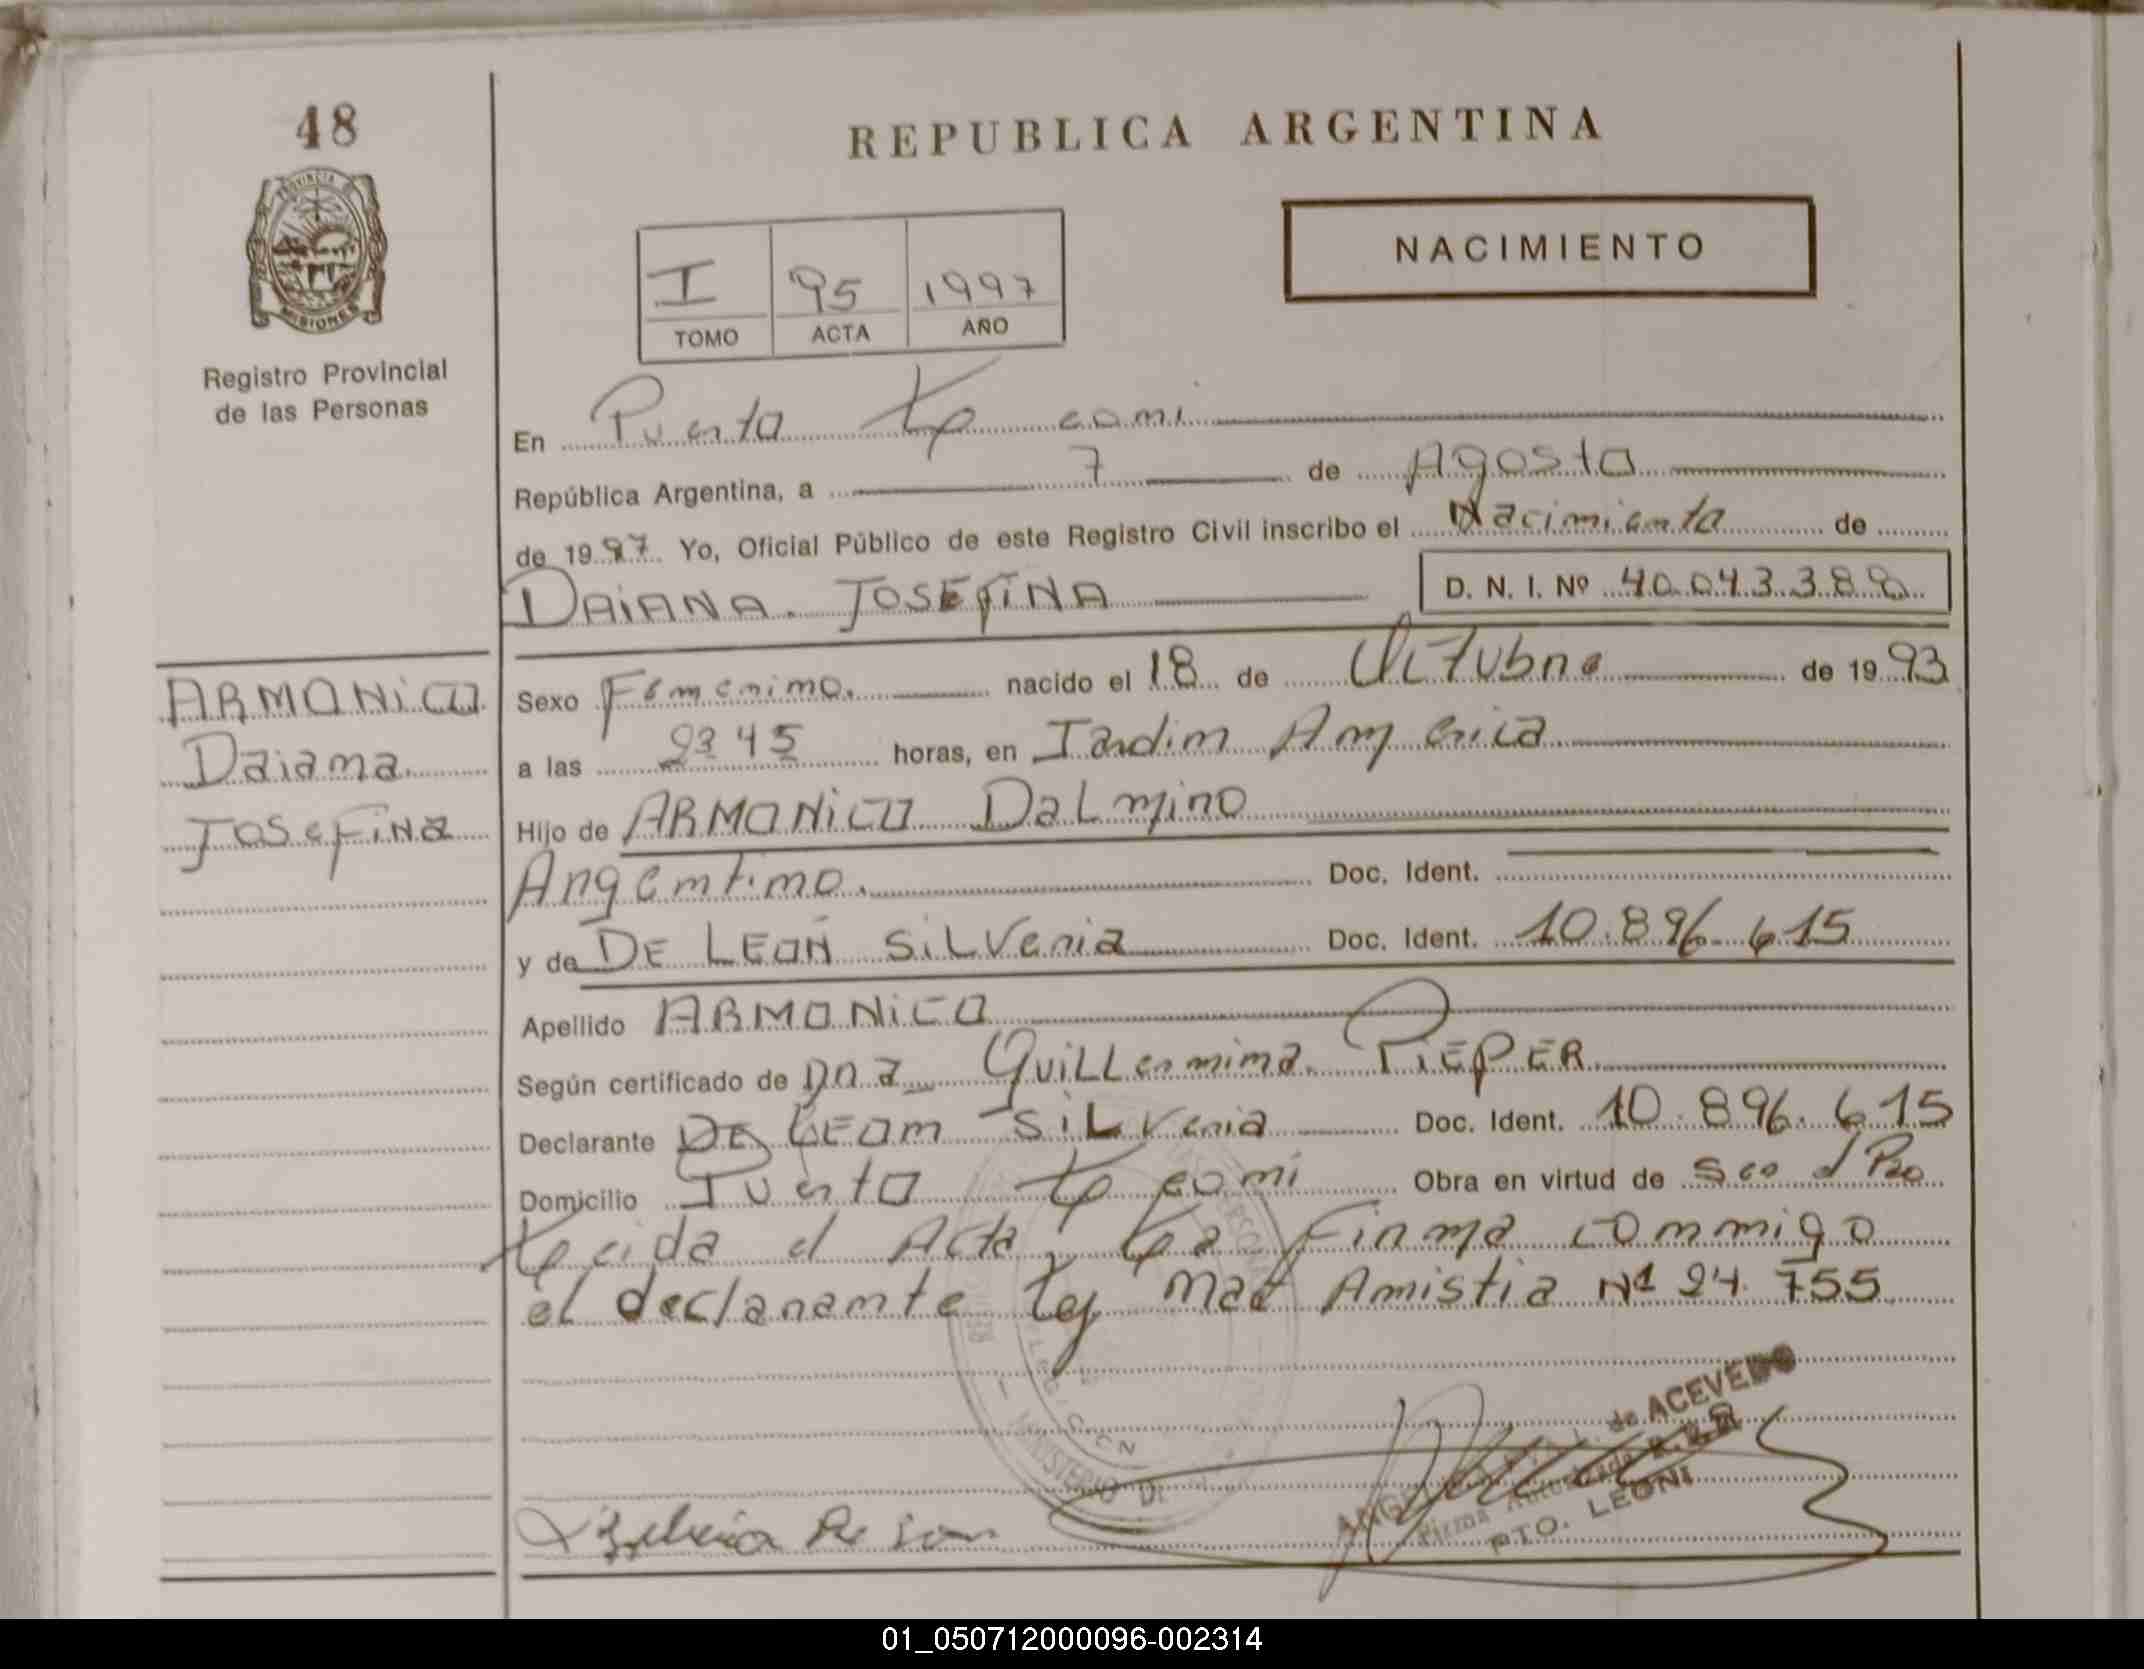 48
REPUBLICA ARGENTINA
PROVINCIA DE
MISIONES
NACIMIENTO
I 95 1997
TOMO ACTA AÑO
Registro Provincial
de las Personas
En Puerto Leoni
República Argentina, a 7 de Agosto
de 1997 Yo, Oficial Público de este Registro Civil inscribo el Nacimiento de
DAIANA JOSEFINA D. N. I. Nº 40.043.388
ARMONICO
Daiana
JOSEFINA
Sexo Femenino. nacido el 18 de Octubre de 1993
a las 2345 horas, en Jardin America
Hijo de ARMONICO Dalmino
Argentino. Doc. Ident.
y de DE LEON SiLVeria Doc. Ident. 10.896.615
Apellido ARMONICO
Según certificado de Dña Guillermina PIEPER
Declarante DE LEON SiLVeria Doc. Ident. 10.896.615
Domicilio Puerto Leoni Obra en virtud de
Leida el Acta, La Firma conmigo
el declarante Ley Nac Amistia Nº 24.755
MINISTERIO DE
de ACEVEDO
Firma Autorizada R.P.P.
PTO. LEONI
01_050712000096-002314